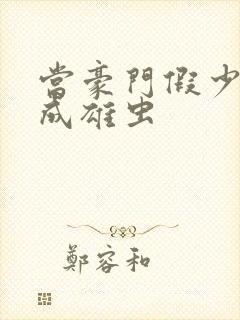 當豪門假少
成雄虫
鄭容和